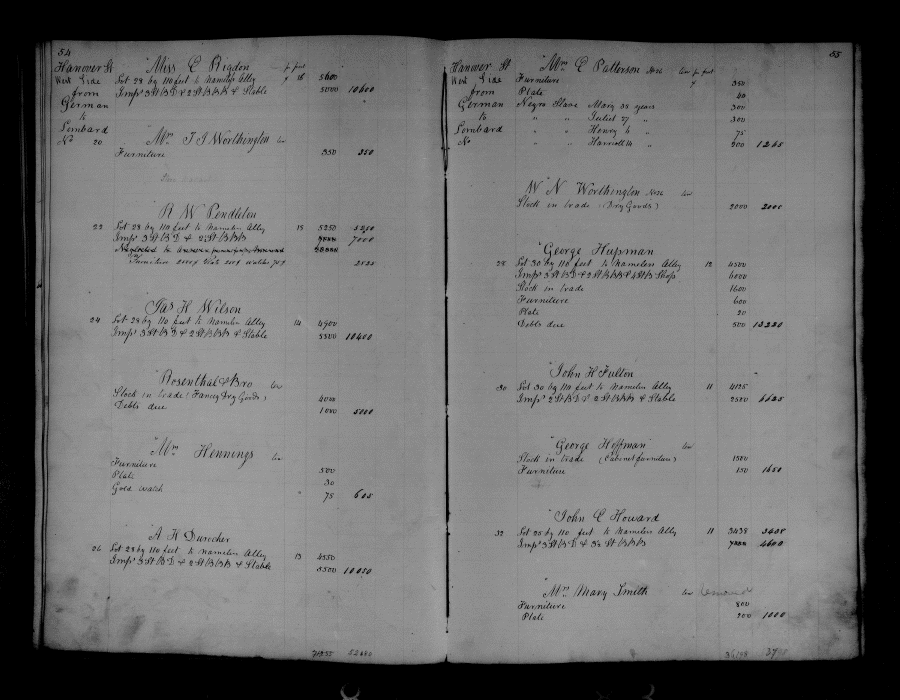 54
Hanover St Miss C Rigdon pr foot
West Side Lot 28 by 110 feet to Nameless Alley 16 5600
from Imps 3 St B D & 2 St B B B & Stable 5000 10600
German
to
Lombard
No 20 Mrs T J Worthington
Furniture 350 350
R W Pendleton
22 Lot 28 by 110 feet to Nameless Alley 15 5250 5250
Imps 3 St B D & 2 St B B B 7000
Neglected to
Furniture 2000$ Plate 200$ watches 2525
Jas H Wilson
24 Lot 28 by 110 feet to Nameless Alley 14 4900
Imps 3 St B D & 2 St B B B & Stable 5500 10400
Rosenthal & Bro
Stock in trade (Fancy Dry Goods) 4000
Debts due 1000 5000
Mrs Hennings
Furniture 500
Plate 30
Gold watch 75 605
A H Durocher
26 Lot 28 by 110 feet to Nameless Alley 13 4550
Imps 3 St B D & 2 St B B B & Stable 5500 10050
52880
55
Hanover St Mrs C Patterson pr foot
West Side Furniture 350
from Plate 40
German Negro Slave Mary 35 years 300
to " " Juliet 27 " 300
Lombard " " Henry 6 " 75
No " " Harriett 14 " 200 1265
W N Worthington
Stock in trade (Dry Goods) 2000 2000
George Hupman
28 Lot 30 by 110 feet to Nameless Alley 12 4500
Imps 3 St B D & 2 St B B B & 4 St B Shop 6000
Stock in trade 1600
Furniture 600
Plate 20
Debts due 500 13220
John H Fulton
30 Lot 30 by 110 feet to Nameless Alley 11 4125
Imps 2 St B D & 2 St B B B & Stable 2500 6625
George Hoffman
Stock in trade (Cabinet furniture) 1500
Furniture 150 1650
John C Howard
32 Lot 25 by 110 feet to Nameless Alley 11 3438 3438
Imps 3 St B D & 3½ St B B B 4600
Mrs Mary Smith
Furniture 800
Plate 200 1000